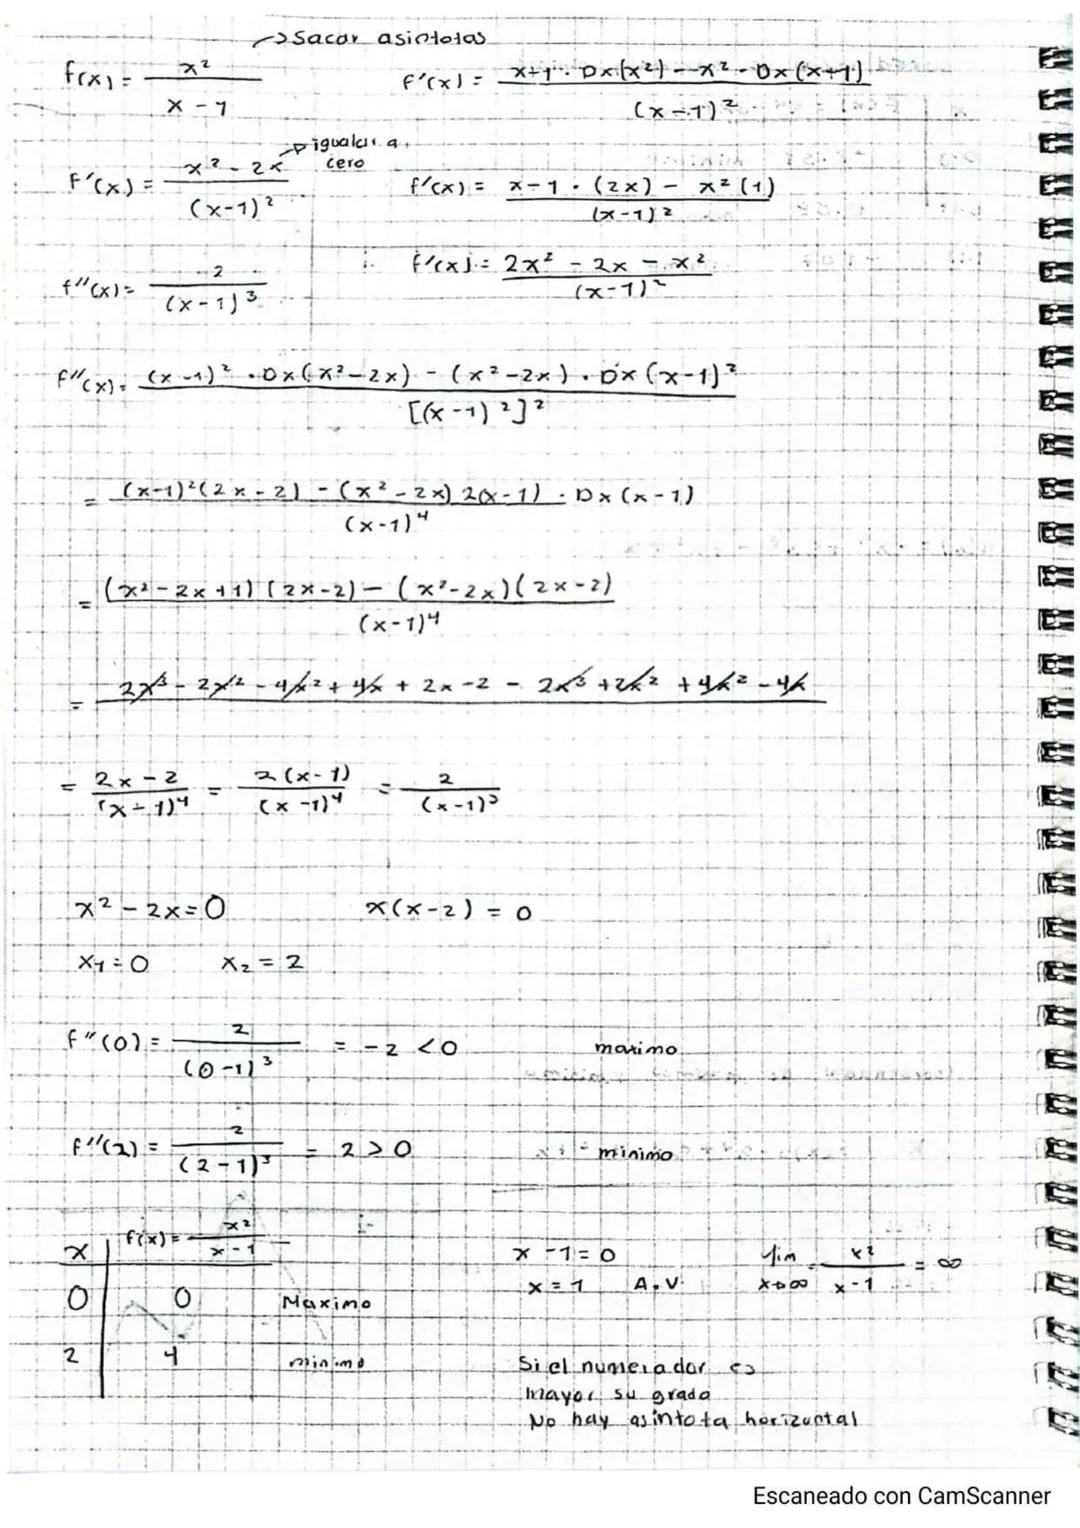 → Sacar asintotas
f(x) = x² / x - 1
f'(x) = x+1 · Dx(x²) - x² · Dx(x+1) / (x-1)²
f'(x) = x² - 2x / (x-1)² → igualar a cero
f'(x) = x-1 · (2x) - x² (1) / (x-1)²
f''(x) = 2 / (x-1)³
f'(x) = 2x² - 2x - x² / (x-1)²
f''(x) = (x-1)² · Dx(x²-2x) - (x²-2x) · Dx(x-1)² / [(x-1)²]²
= (x-1)²(2x-2) - (x²-2x) 2(x-1) · Dx(x-1) / (x-1)⁴
= (x²-2x+1)(2x-2) - (x²-2x)(2x-2) / (x-1)⁴
= 2x³ - 2x² - 4x² + 4x + 2x - 2 - 2x³ + 2x² + 4x² - 4x
= 2x - 2 / (x-1)⁴ = 2(x-1) / (x-1)⁴ = 2 / (x-1)³
x² - 2x = 0 x(x-2) = 0
x₁ = 0 x₂ = 2
f''(0) = 2 / (0-1)³ = -2 < 0 maximo
f''(2) = 2 / (2-1)³ = 2 > 0 minimo
x f(x) = x² / x-1
0 0 Maximo
2 4 minimo
x - 1 = 0
x = 1 A.V.
lim x→∞ x² / x-1 = ∞
Si el numerador es
mayor su grado
No hay asintota horizontal
Escaneado con CamScanner